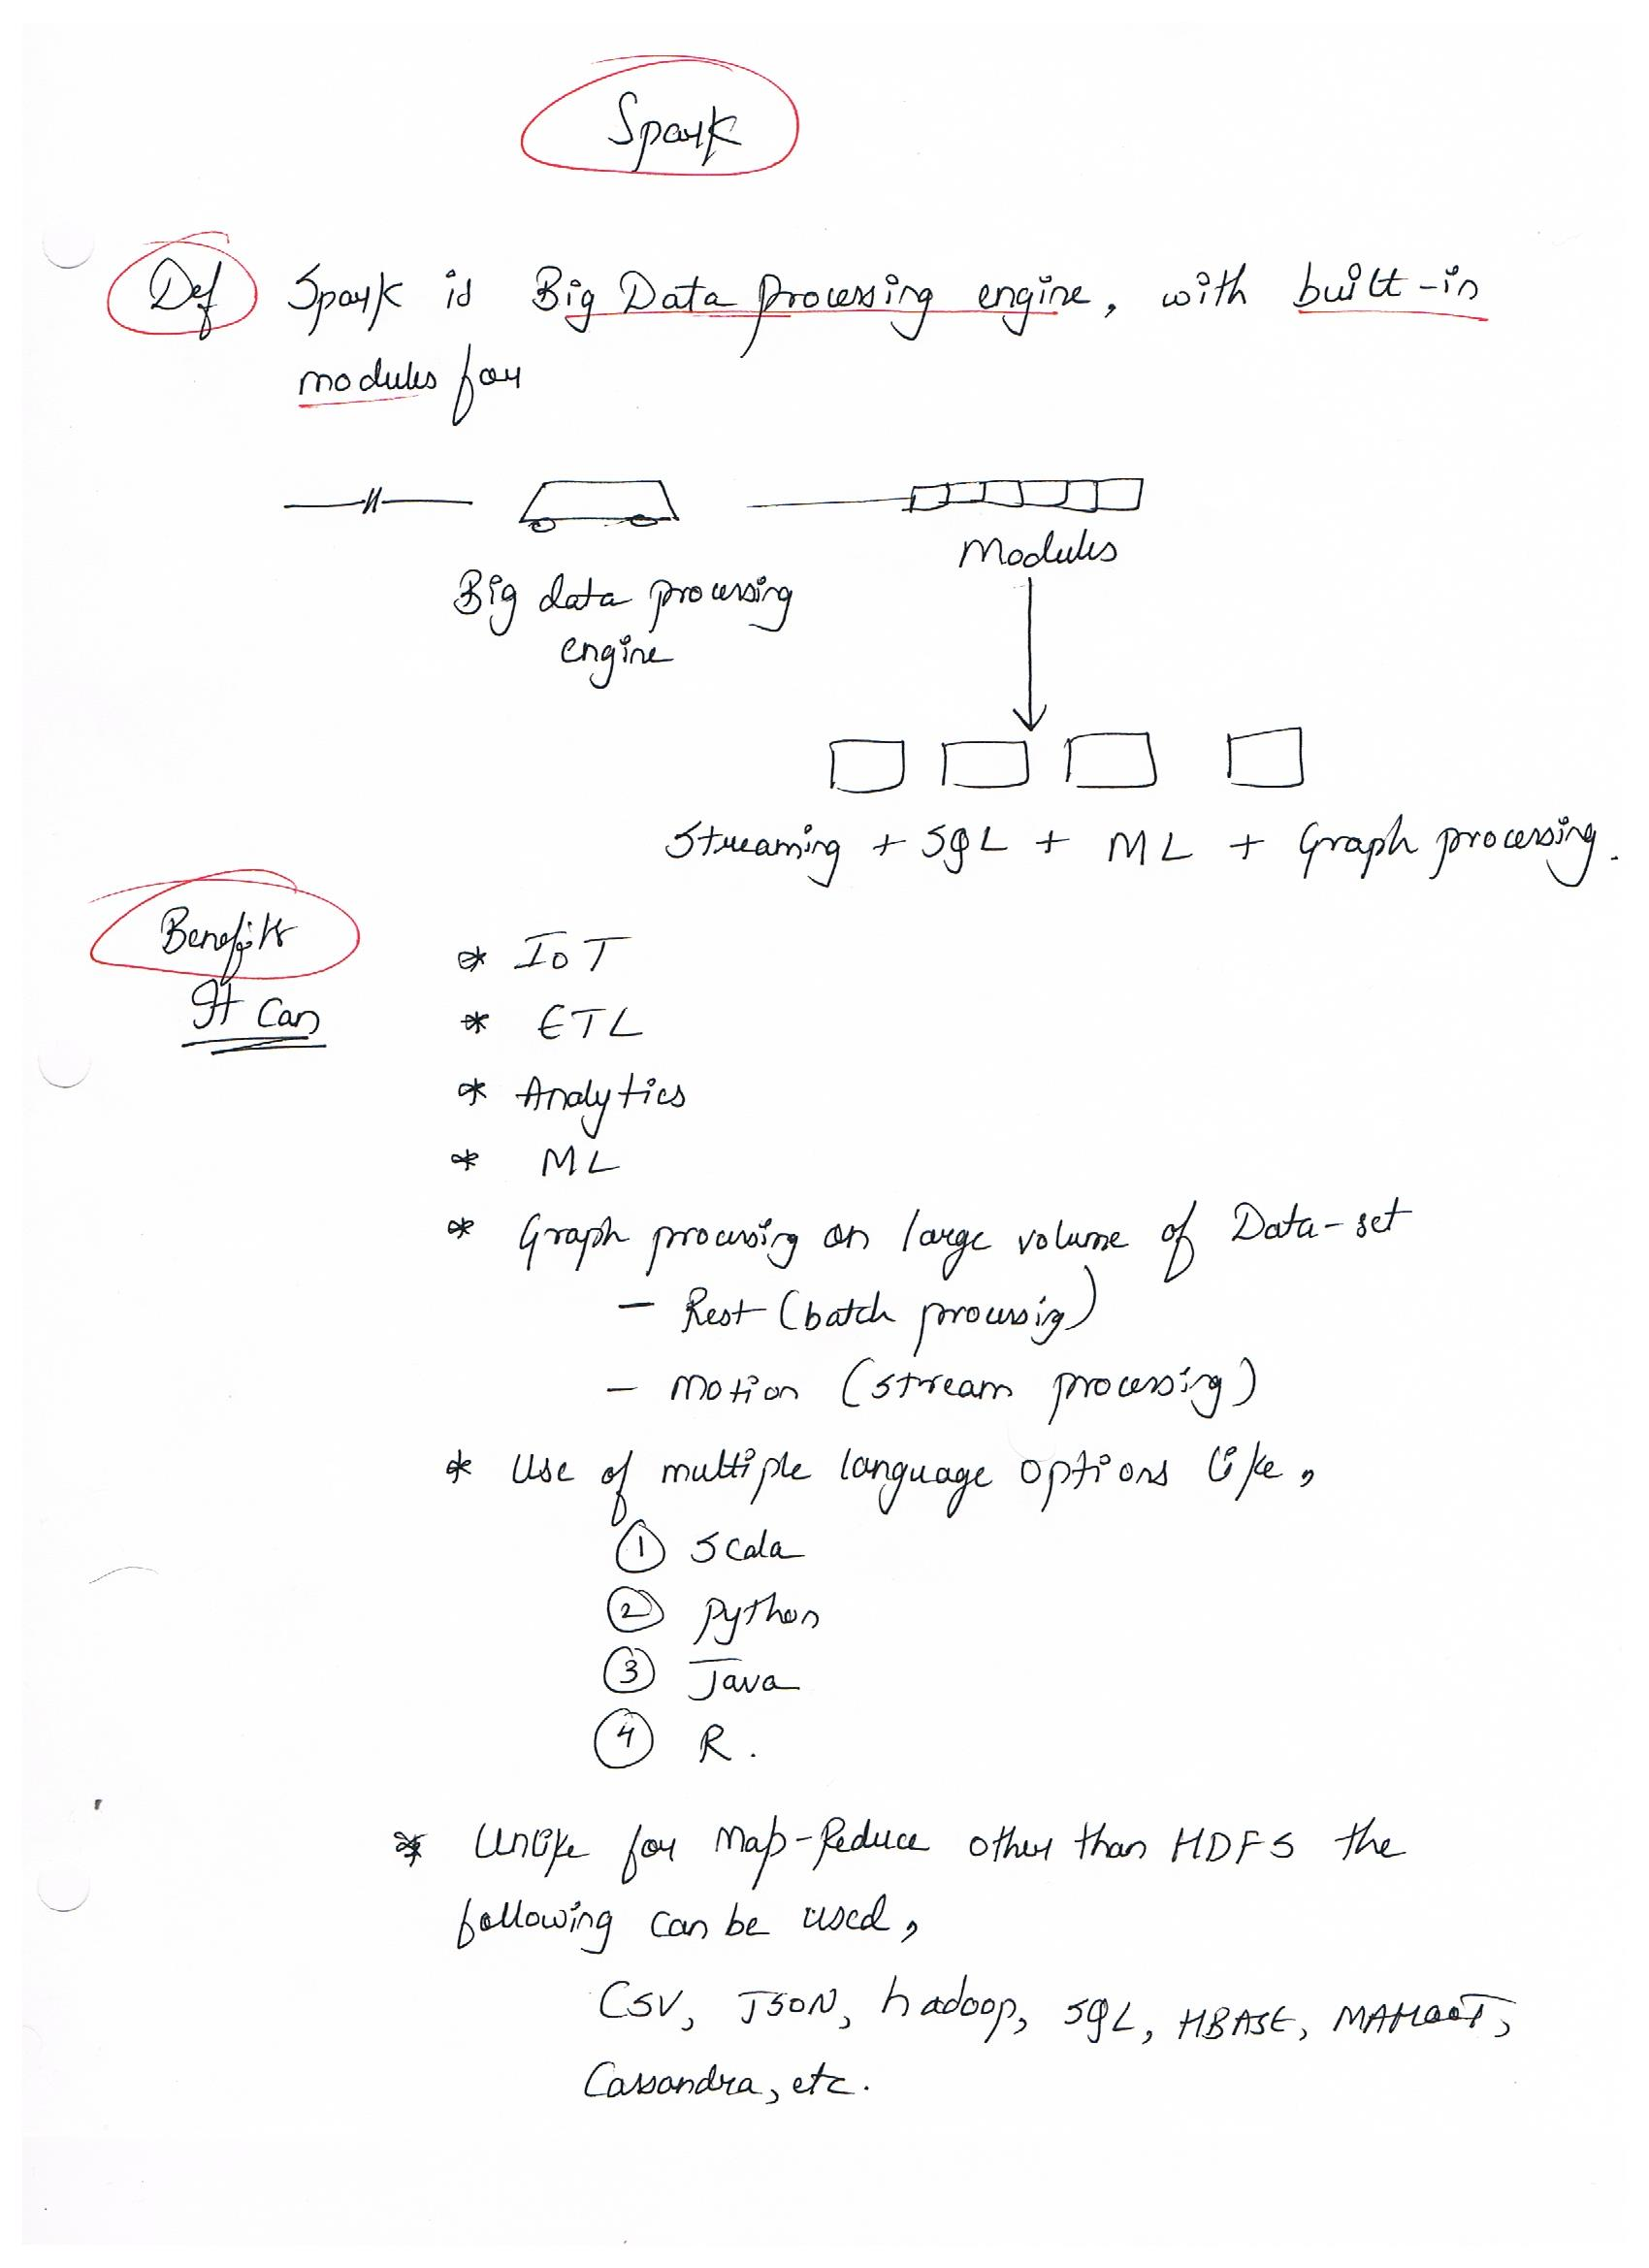 Spark
Def Spark is Big Data processing engine, with built-in
modules for
Modules
Big data processing
engine
Streaming + SQL + ML + Graph processing.
Benefits
It Can
* IoT
* ETL
* Analytics
* ML
* Graph processing on large volume of Data-set
- Rest (batch processig)
- Motion (stream processing)
* Use of multiple language options like,
① Scala
② Python
③ Java
④ R.
* Unlike for Map-Reduce other than HDFS the
following can be used,
CSV, JSON, hadoop, SQL, HBASE, MAHOOT,
Cassandra, etc.